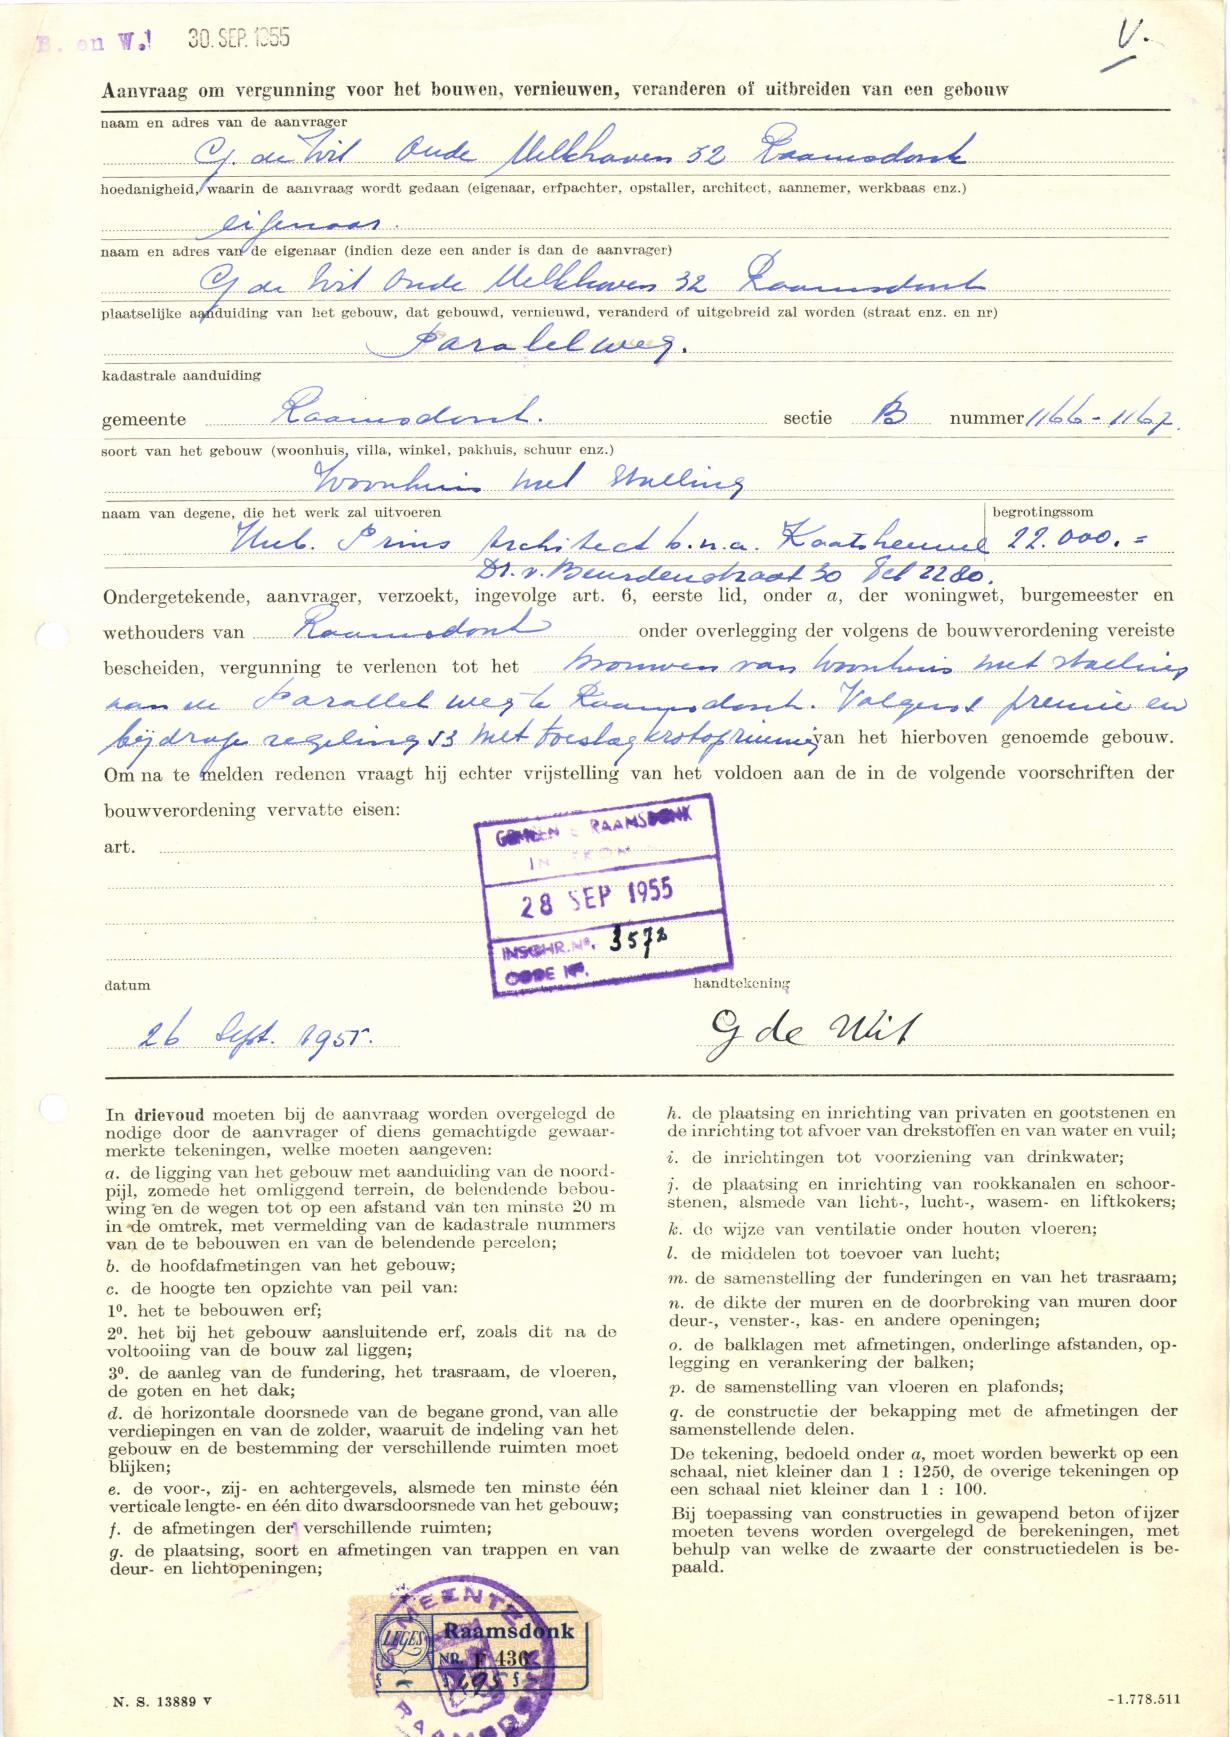 B. en W.! 30. SEP. 1955
V.
Aanvraag om vergunning voor het bouwen, vernieuwen, veranderen of uitbreiden van een gebouw
naam en adres van de aanvrager
G. de Wit Oude Melkhaven 32 Raamsdonk
hoedanigheid, waarin de aanvraag wordt gedaan (eigenaar, erfpachter, opstaller, architect, aannemer, werkbaas enz.)
eigenaar.
naam en adres van de eigenaar (indien deze een ander is dan de aanvrager)
G de Wit Oude Melkhaven 32 Raamsdonk
plaatselijke aanduiding van het gebouw, dat gebouwd, vernieuwd, veranderd of uitgebreid zal worden (straat enz. en nr)
Paralelweg.
kadastrale aanduiding
gemeente Raamsdonk. sectie B nummer 1166-1167.
soort van het gebouw (woonhuis, villa, winkel, pakhuis, schuur enz.)
Woonhuis met stalling
naam van degene, die het werk zal uitvoeren begrotingssom
Hub. Prins Architect b.n.a. Kaatsheuvel 22.000.=
Dr. v. Beurdenstraat 30 Tel 2280.
Ondergetekende, aanvrager, verzoekt, ingevolge art. 6, eerste lid, onder a, der woningwet, burgemeester en
wethouders van Raamsdonk onder overlegging der volgens de bouwverordening vereiste
bescheiden, vergunning te verlenen tot het bouwen van woonhuis met stalling
aan de Parallel weg te Raamsdonk. Volgens premie en
bijdrage regeling 53 met toeslag krotopruiming van het hierboven genoemde gebouw.
Om na te melden redenen vraagt hij echter vrijstelling van het voldoen aan de in de volgende voorschriften der
bouwverordening vervatte eisen:
art.
GEMEENTE RAAMSDONK
INGEKOMEN
28 SEP 1955
INSCHR. Nº. 3572
CODE Nº.
datum handtekening
26 Sept. 1955. G de Wit
In drievoud moeten bij de aanvraag worden overgelegd de
nodige door de aanvrager of diens gemachtigde gewaar-
merkte tekeningen, welke moeten aangeven:
a. de ligging van het gebouw met aanduiding van de noord-
pijl, zomede het omliggend terrein, de belendende bebou-
wing en de wegen tot op een afstand van ten minste 20 m
in de omtrek, met vermelding van de kadastrale nummers
van de te bebouwen en van de belendende percelen;
b. de hoofdafmetingen van het gebouw;
c. de hoogte ten opzichte van peil van:
1º. het te bebouwen erf;
2º. het bij het gebouw aansluitende erf, zoals dit na de
voltooiing van de bouw zal liggen;
3º. de aanleg van de fundering, het trasraam, de vloeren,
de goten en het dak;
d. de horizontale doorsnede van de begane grond, van alle
verdiepingen en van de zolder, waaruit de indeling van het
gebouw en de bestemming der verschillende ruimten moet
blijken;
e. de voor-, zij- en achtergevels, alsmede ten minste één
verticale lengte- en één dito dwarsdoorsnede van het gebouw;
f. de afmetingen der verschillende ruimten;
g. de plaatsing, soort en afmetingen van trappen en van
deur- en lichtopeningen;
h. de plaatsing en inrichting van privaten en gootstenen en
de inrichting tot afvoer van drekstoffen en van water en vuil;
i. de inrichtingen tot voorziening van drinkwater;
j. de plaatsing en inrichting van rookkanalen en schoor-
stenen, alsmede van licht-, lucht-, wasem- en liftkokers;
k. de wijze van ventilatie onder houten vloeren;
l. de middelen tot toevoer van lucht;
m. de samenstelling der funderingen en van het trasraam;
n. de dikte der muren en de doorbreking van muren door
deur-, venster-, kas- en andere openingen;
o. de balklagen met afmetingen, onderlinge afstanden, op-
legging en verankering der balken;
p. de samenstelling van vloeren en plafonds;
q. de constructie der bekapping met de afmetingen der
samenstellende delen.
De tekening, bedoeld onder a, moet worden bewerkt op een
schaal, niet kleiner dan 1 : 1250, de overige tekeningen op
een schaal niet kleiner dan 1 : 100.
Bij toepassing van constructies in gewapend beton of ijzer
moeten tevens worden overgelegd de berekeningen, met
behulp van welke de zwaarte der constructiedelen is be-
paald.
GEMEENTE RAAMSDONK
LEGES Raamsdonk
NR. F 436
N. S. 13889 V
-1.778.511